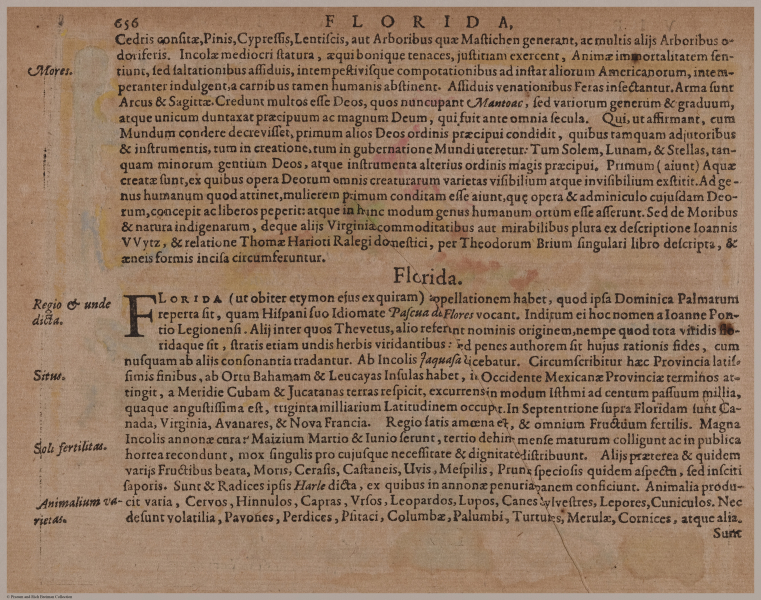 656 FLORIDA,
Cedris consitæ, Pinis, Cypressis, Lentiscis, aut Arboribus quæ Mastichen generant, ac multis alijs Arboribus o-
doriferis. Incolæ mediocri statura, æqui bonique tenaces, justitiam exercent, Animæ immortalitatem sen-
Mores.
tiunt, sed saltationibus assiduis, intempestivisque compotationibus ad instar aliorum Americanorum, intem-
peranter indulgent, a carnibus tamen humanis abstinent. Assiduis venationibus Feras insectantur. Arma sunt
Arcus & Sagittæ. Credunt multos esse Deos, quos nuncupant Mantoac, sed variorum generum & graduum,
atque unicum duntaxat præcipuum ac magnum Deum, qui fuit ante omnia secula. Qui, ut affirmant, cum
Mundum condere decrevisset, primum alios Deos ordinis præcipui condidit, quibus tamquam adjutoribus
& instrumentis, tum in creatione, tum in gubernatione Mundi uteretur: Tum Solem, Lunam, & Stellas, tan-
quam minorum gentium Deos, atque instrumenta alterius ordinis magis præcipui. Primum (aiunt) Aquæ
creatæ sunt, ex quibus opera Deorum omnis creaturarum varietas visibilium atque invisibilium exstitit. Ad ge-
nus humanum quod attinet, mulierem primum conditam esse aiunt, quę opera & adminiculo cujusdam Deo-
rum, concepit ac liberos peperit: atque in hunc modum genus humanum ortum esse asserunt. Sed de Moribus
& natura indigenarum, deque alijs Virginiæ commoditatibus aut mirabilibus plura ex descriptione Ioannis
VVytz, & relatione Thomæ Harioti Ralegi domestici, per Theodorum Brium singulari libro descripta, &
æneis formis incisa circumferuntur.
Florida.
Regio & unde
dicta.
FLORIDA (ut obiter etymon ejus exquiram) appellationem habet, quod ipsa Dominica Palmarum
reperta sit, quam Hispani suo Idiomate Pascua de Flores vocant. Inditum ei hoc nomen a Ioanne Pon-
tio Legionensi. Alij inter quos Thevetus, alio referunt nominis originem, nempe quod tota viridis flo-
ridaque sit, stratis etiam undis herbis viridantibus: sed penes authorem sit hujus rationis fides, cum
nusquam ab alijs consonantia tradantur. Ab Incolis Jaquasa dicebatur. Circumscribitur hæc Provincia latis-
Situs.
simis finibus, ab Ortu Bahamam & Leucayas Insulas habet, in Occidente Mexicanæ Provinciæ terminos at-
tingit, a Meridie Cubam & Jucatanas terras respicit, excurrens in modum Isthmi ad centum passuum millia,
quaque angustissima est, triginta milliarium Latitudinem occupat. In Septentrione supra Floridam sunt Ca-
nada, Virginia, Avanares, & Nova Francia. Regio satis amœna est, & omnium Fructuum fertilis. Magna
Soli fertilitas.
Incolis annonæ cura: Maizium Martio & Iunio serunt, tertio dehinc mense maturum colligunt ac in publica
horrea recondunt, mox singulis pro cujusque necessitate & dignitate distribuunt. Alijs præterea & quidem
varijs Fructibus beata, Moris, Cerasis, Castaneis, Uvis, Mespilis, Prunis speciosis quidem aspectu, sed insciti
saporis. Sunt & Radices ipsis Harle dicta, ex quibus in annonæ penuria panem conficiunt. Animalia produ-
Animalium va-
rietas.
cit varia, Cervos, Hinnulos, Capras, Vrsos, Leopardos, Lupos, Canes sylvestres, Lepores, Cuniculos. Nec
desunt volatilia, Pavones, Perdices, Psitaci, Columbæ, Palumbi, Turtures, Merulæ, Cornices, atque alia.
Sunt